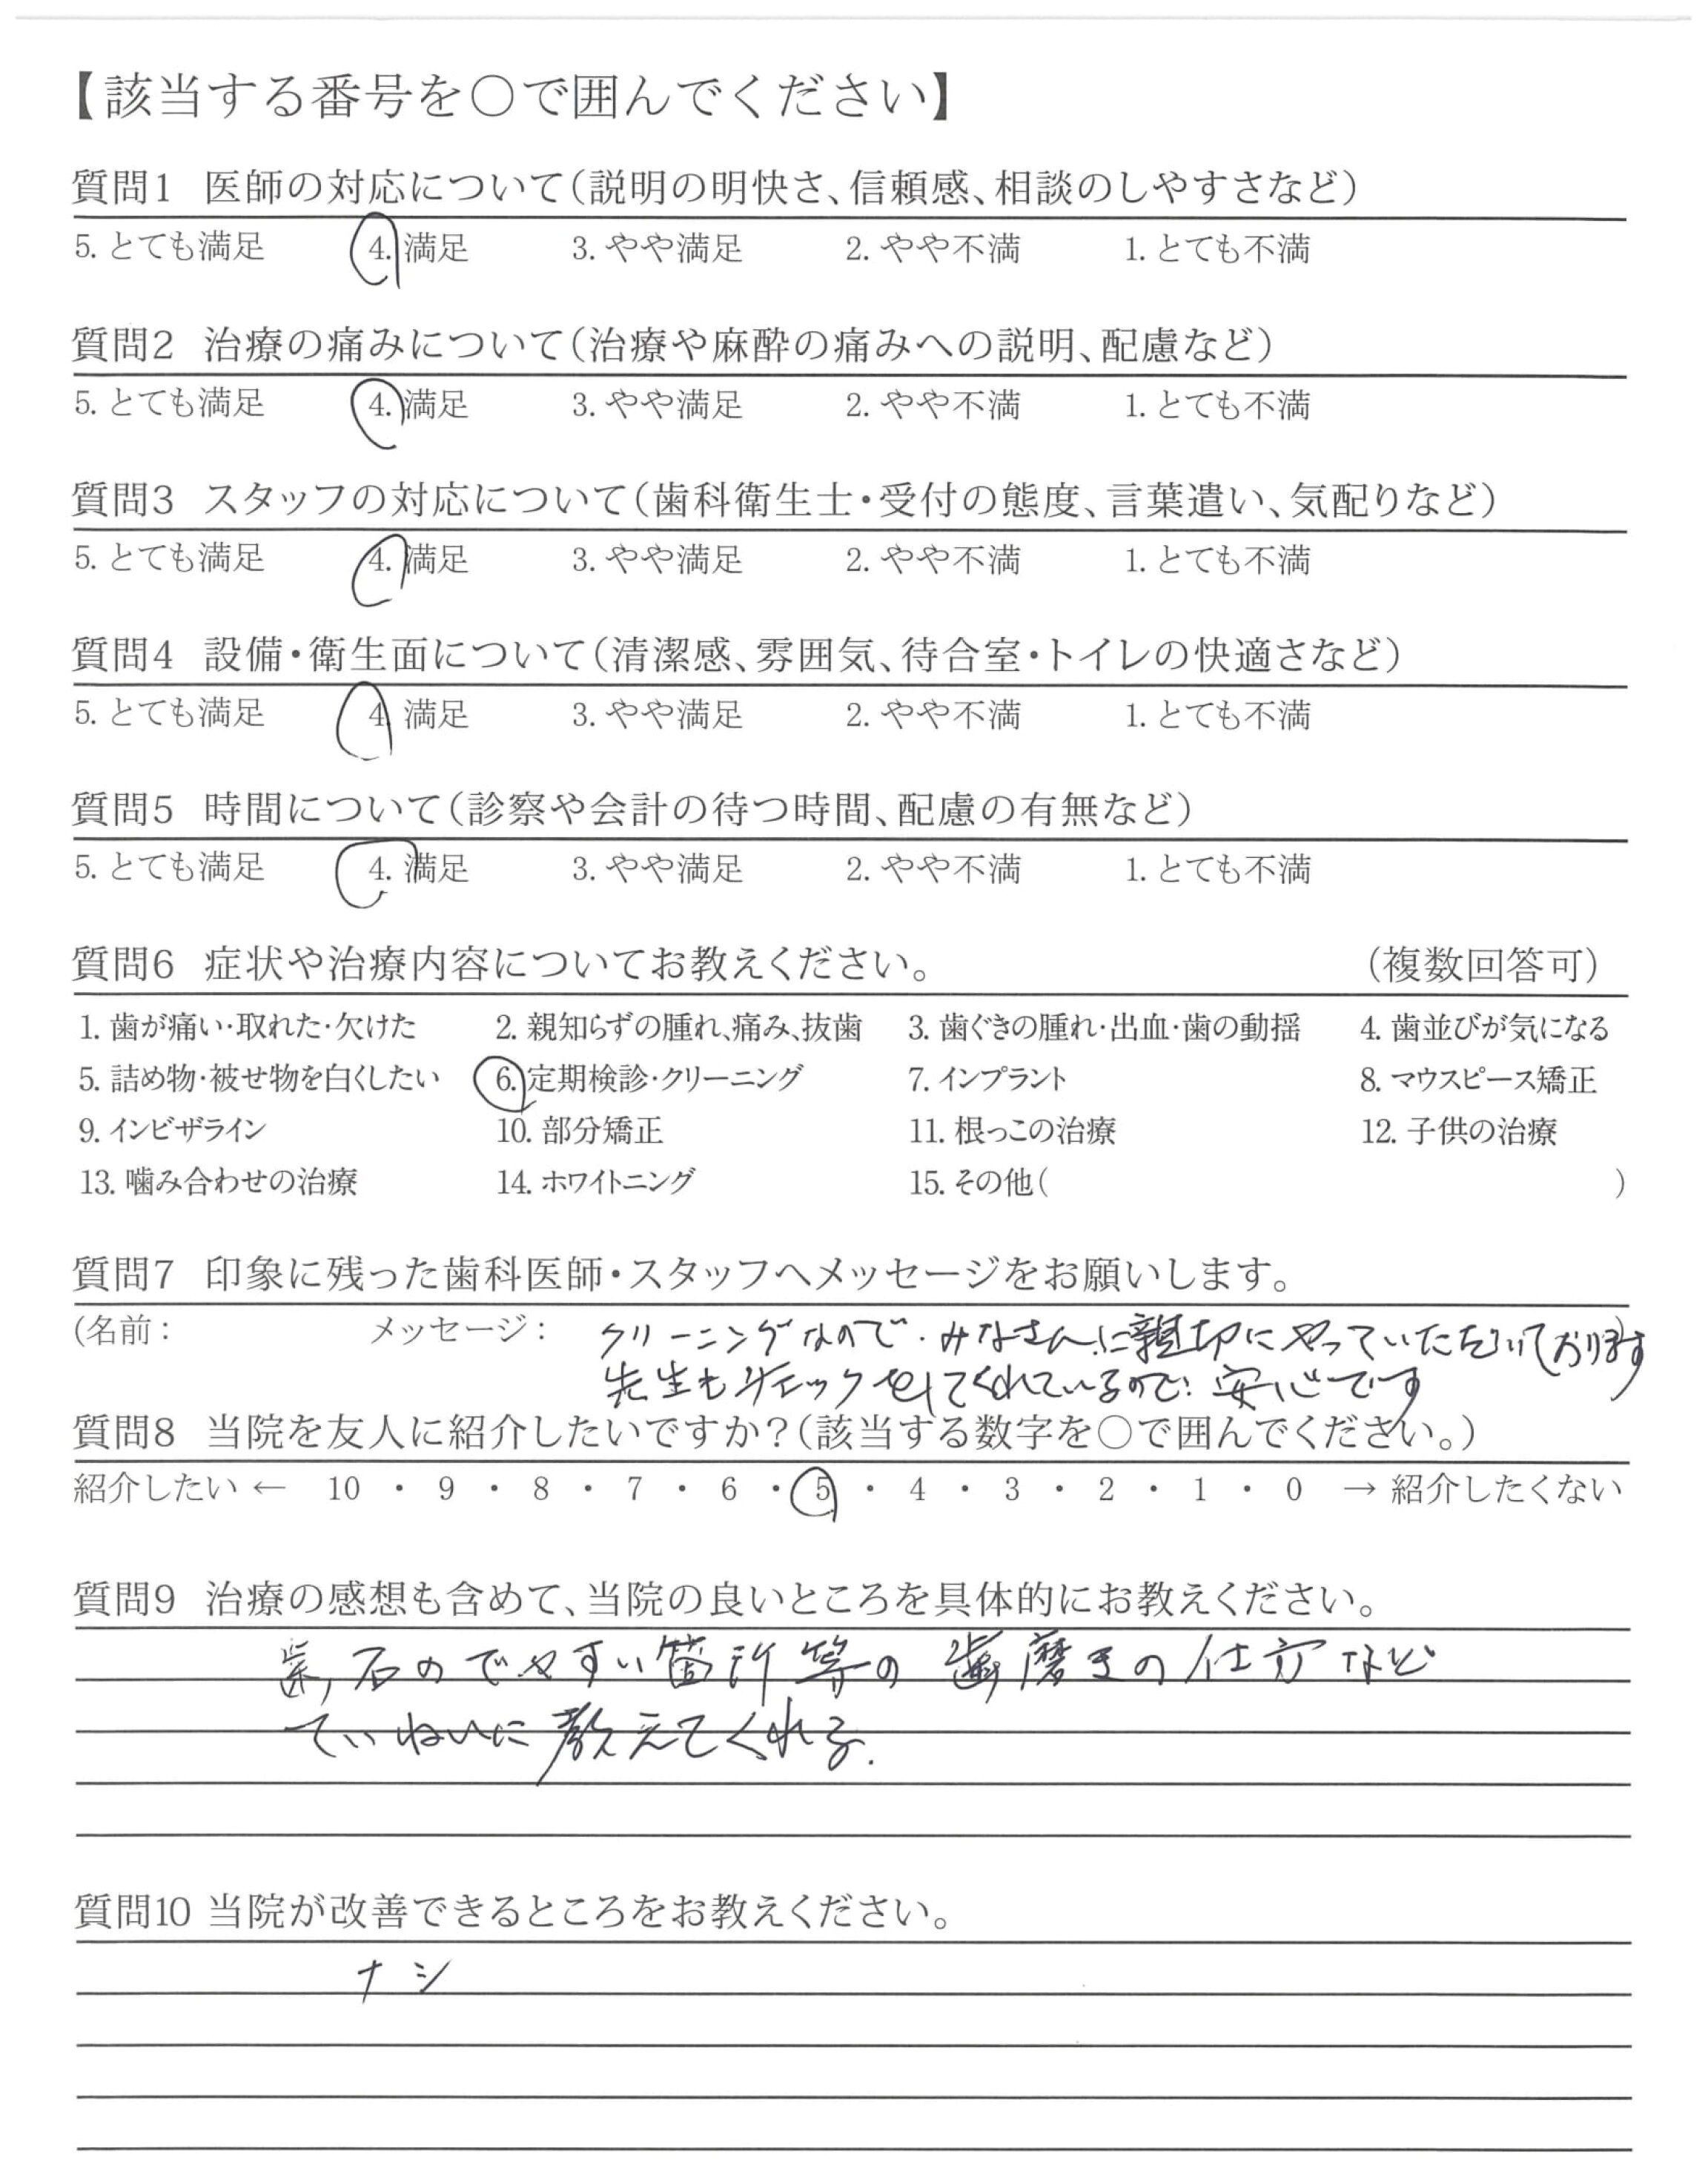 【該当する番号を○で囲んでください】
質問1 医師の対応について（説明の明快さ、信頼感、相談のしやすさなど）
5. とても満足 4. 満足 3. やや満足 2. やや不満 1. とても不満
質問2 治療の痛みについて（治療や麻酔の痛みへの説明、配慮など）
5. とても満足 4. 満足 3. やや満足 2. やや不満 1. とても不満
質問3 スタッフの対応について（歯科衛生士・受付の態度、言葉遣い、気配りなど）
5. とても満足 4. 満足 3. やや満足 2. やや不満 1. とても不満
質問4 設備・衛生面について（清潔感、雰囲気、待合室・トイレの快適さなど）
5. とても満足 4. 満足 3. やや満足 2. やや不満 1. とても不満
質問5 時間について（診察や会計の待つ時間、配慮の有無など）
5. とても満足 4. 満足 3. やや満足 2. やや不満 1. とても不満
質問6 症状や治療内容についてお教えください。 （複数回答可）
1. 歯が痛い・取れた・欠けた 2. 親知らずの腫れ、痛み、抜歯 3. 歯ぐきの腫れ・出血・歯の動揺 4. 歯並びが気になる
5. 詰め物・被せ物を白くしたい 6. 定期検診・クリーニング 7. インプラント 8. マウスピース矯正
9. インビザライン 10. 部分矯正 11. 根っこの治療 12. 子供の治療
13. 噛み合わせの治療 14. ホワイトニング 15. その他（ ）
質問7 印象に残った歯科医師・スタッフへメッセージをお願いします。
(名前： メッセージ： クリーニングなので．みなさんに親切にやっていただいております
先生もチェックをしてくれているので．安心です
質問8 当院を友人に紹介したいですか？（該当する数字を○で囲んでください。）
紹介したい ← 10 ・ 9 ・ 8 ・ 7 ・ 6 ・ 5 ・ 4 ・ 3 ・ 2 ・ 1 ・ 0 → 紹介したくない
質問9 治療の感想も含めて、当院の良いところを具体的にお教えください。
歯石のでやすい箇所等の歯磨きの仕方など
ていねいに教えてくれる．
質問10 当院が改善できるところをお教えください。
ナシ